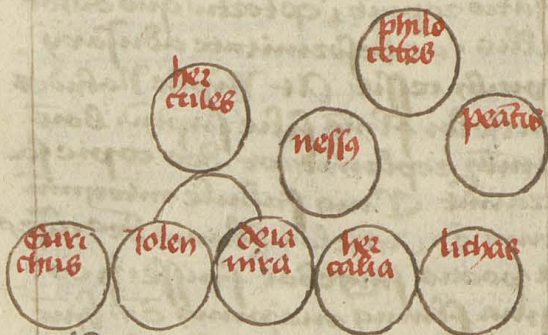 philo
ctetes
her
cules
peantis
nessꝯ
Euri
chus
Iolen
deia
nira
her
calia
lichas